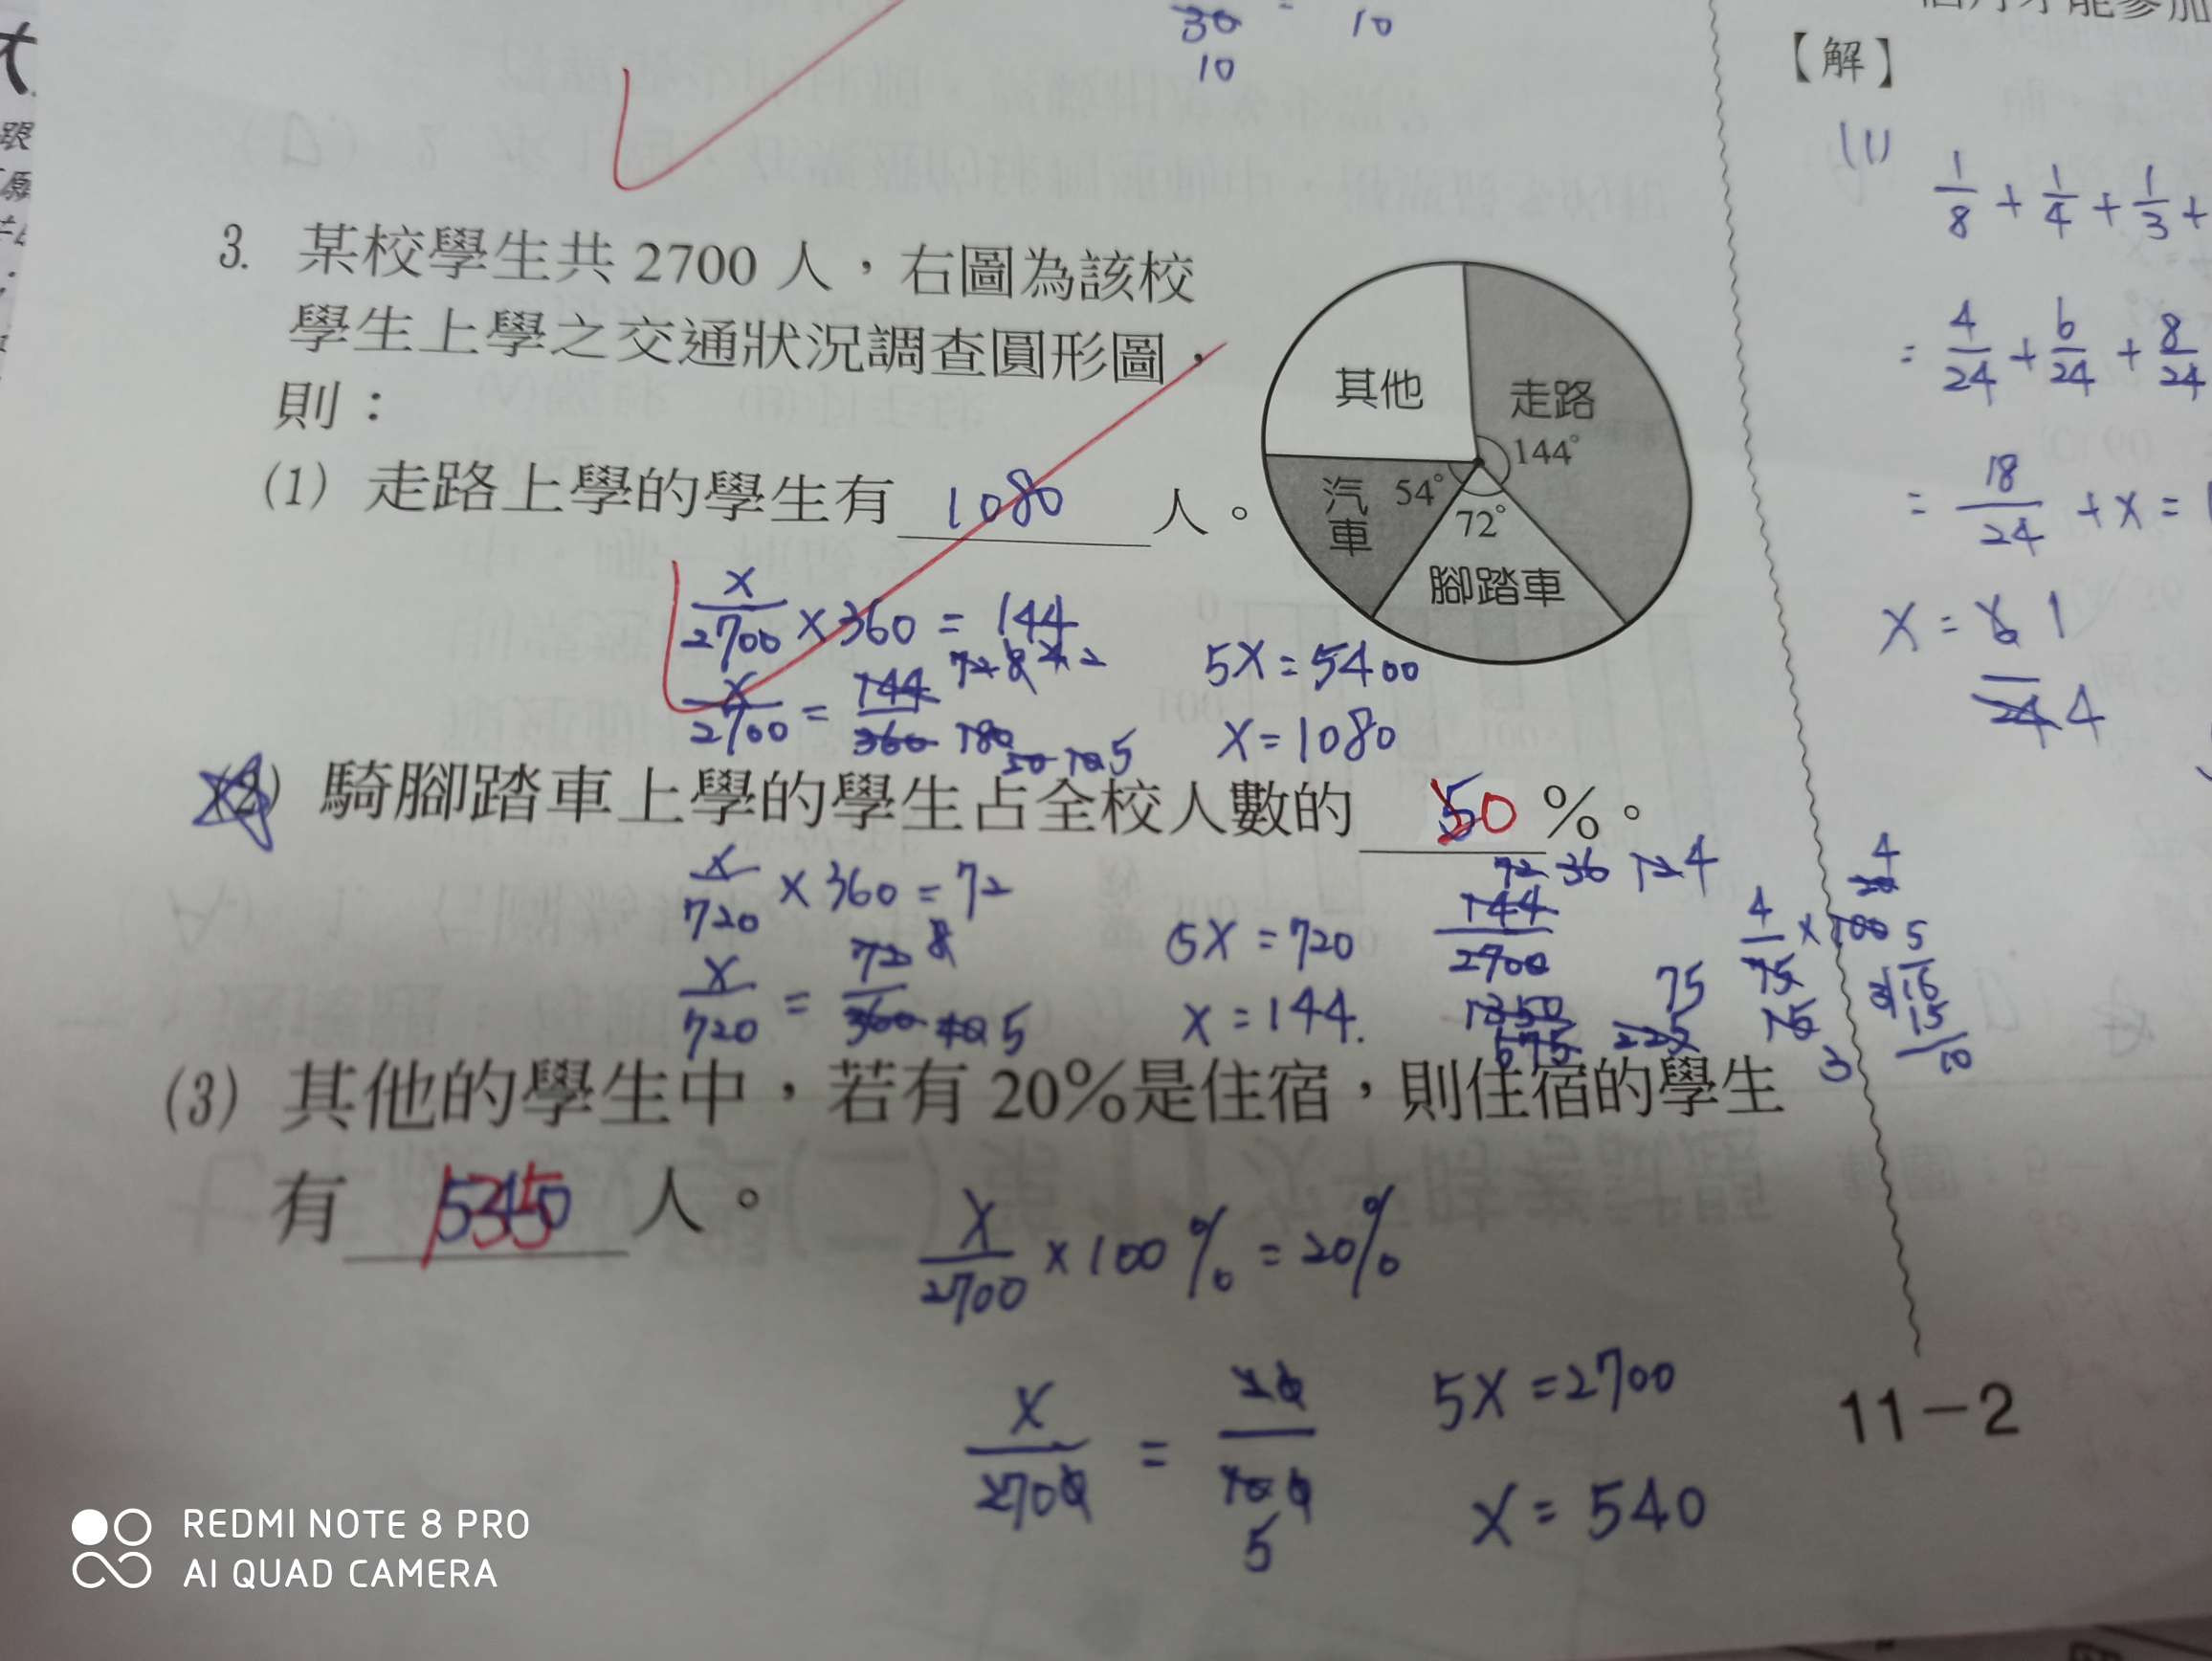 30 = 10
10
3. 某校學生共 2700 人，右圖為該校
學生上學之交通狀況調查圓形圖，
則：
其他
走路
144°
汽車
54°
72°
腳踏車
(1) 走路上學的學生有 1080 人。
x/2700 × 360 = 144
x/2700 = 144/360 72 180 5
5x = 5400
x = 1080
(2) 騎腳踏車上學的學生占全校人數的 0 %。
x/720 × 360 = 72
x/720 = 72/360 8 5
5x = 720
x = 144.
72 36 12 4
144/2700
1350
675 225 75
4/75 × 100
(3) 其他的學生中，若有 20%是住宿，則住宿的學生
有 135 人。
x/2700 × 100% = 20%
x/2700 = 20/100
5
5x = 2700
x = 540
11-2
【解】
(1)
1/8 + 1/4 + 1/3 +
= 4/24 + 6/24 + 8/24
= 18/24 + x = 1
x = 6/24 1 4
REDMI NOTE 8 PRO
AI QUAD CAMERA